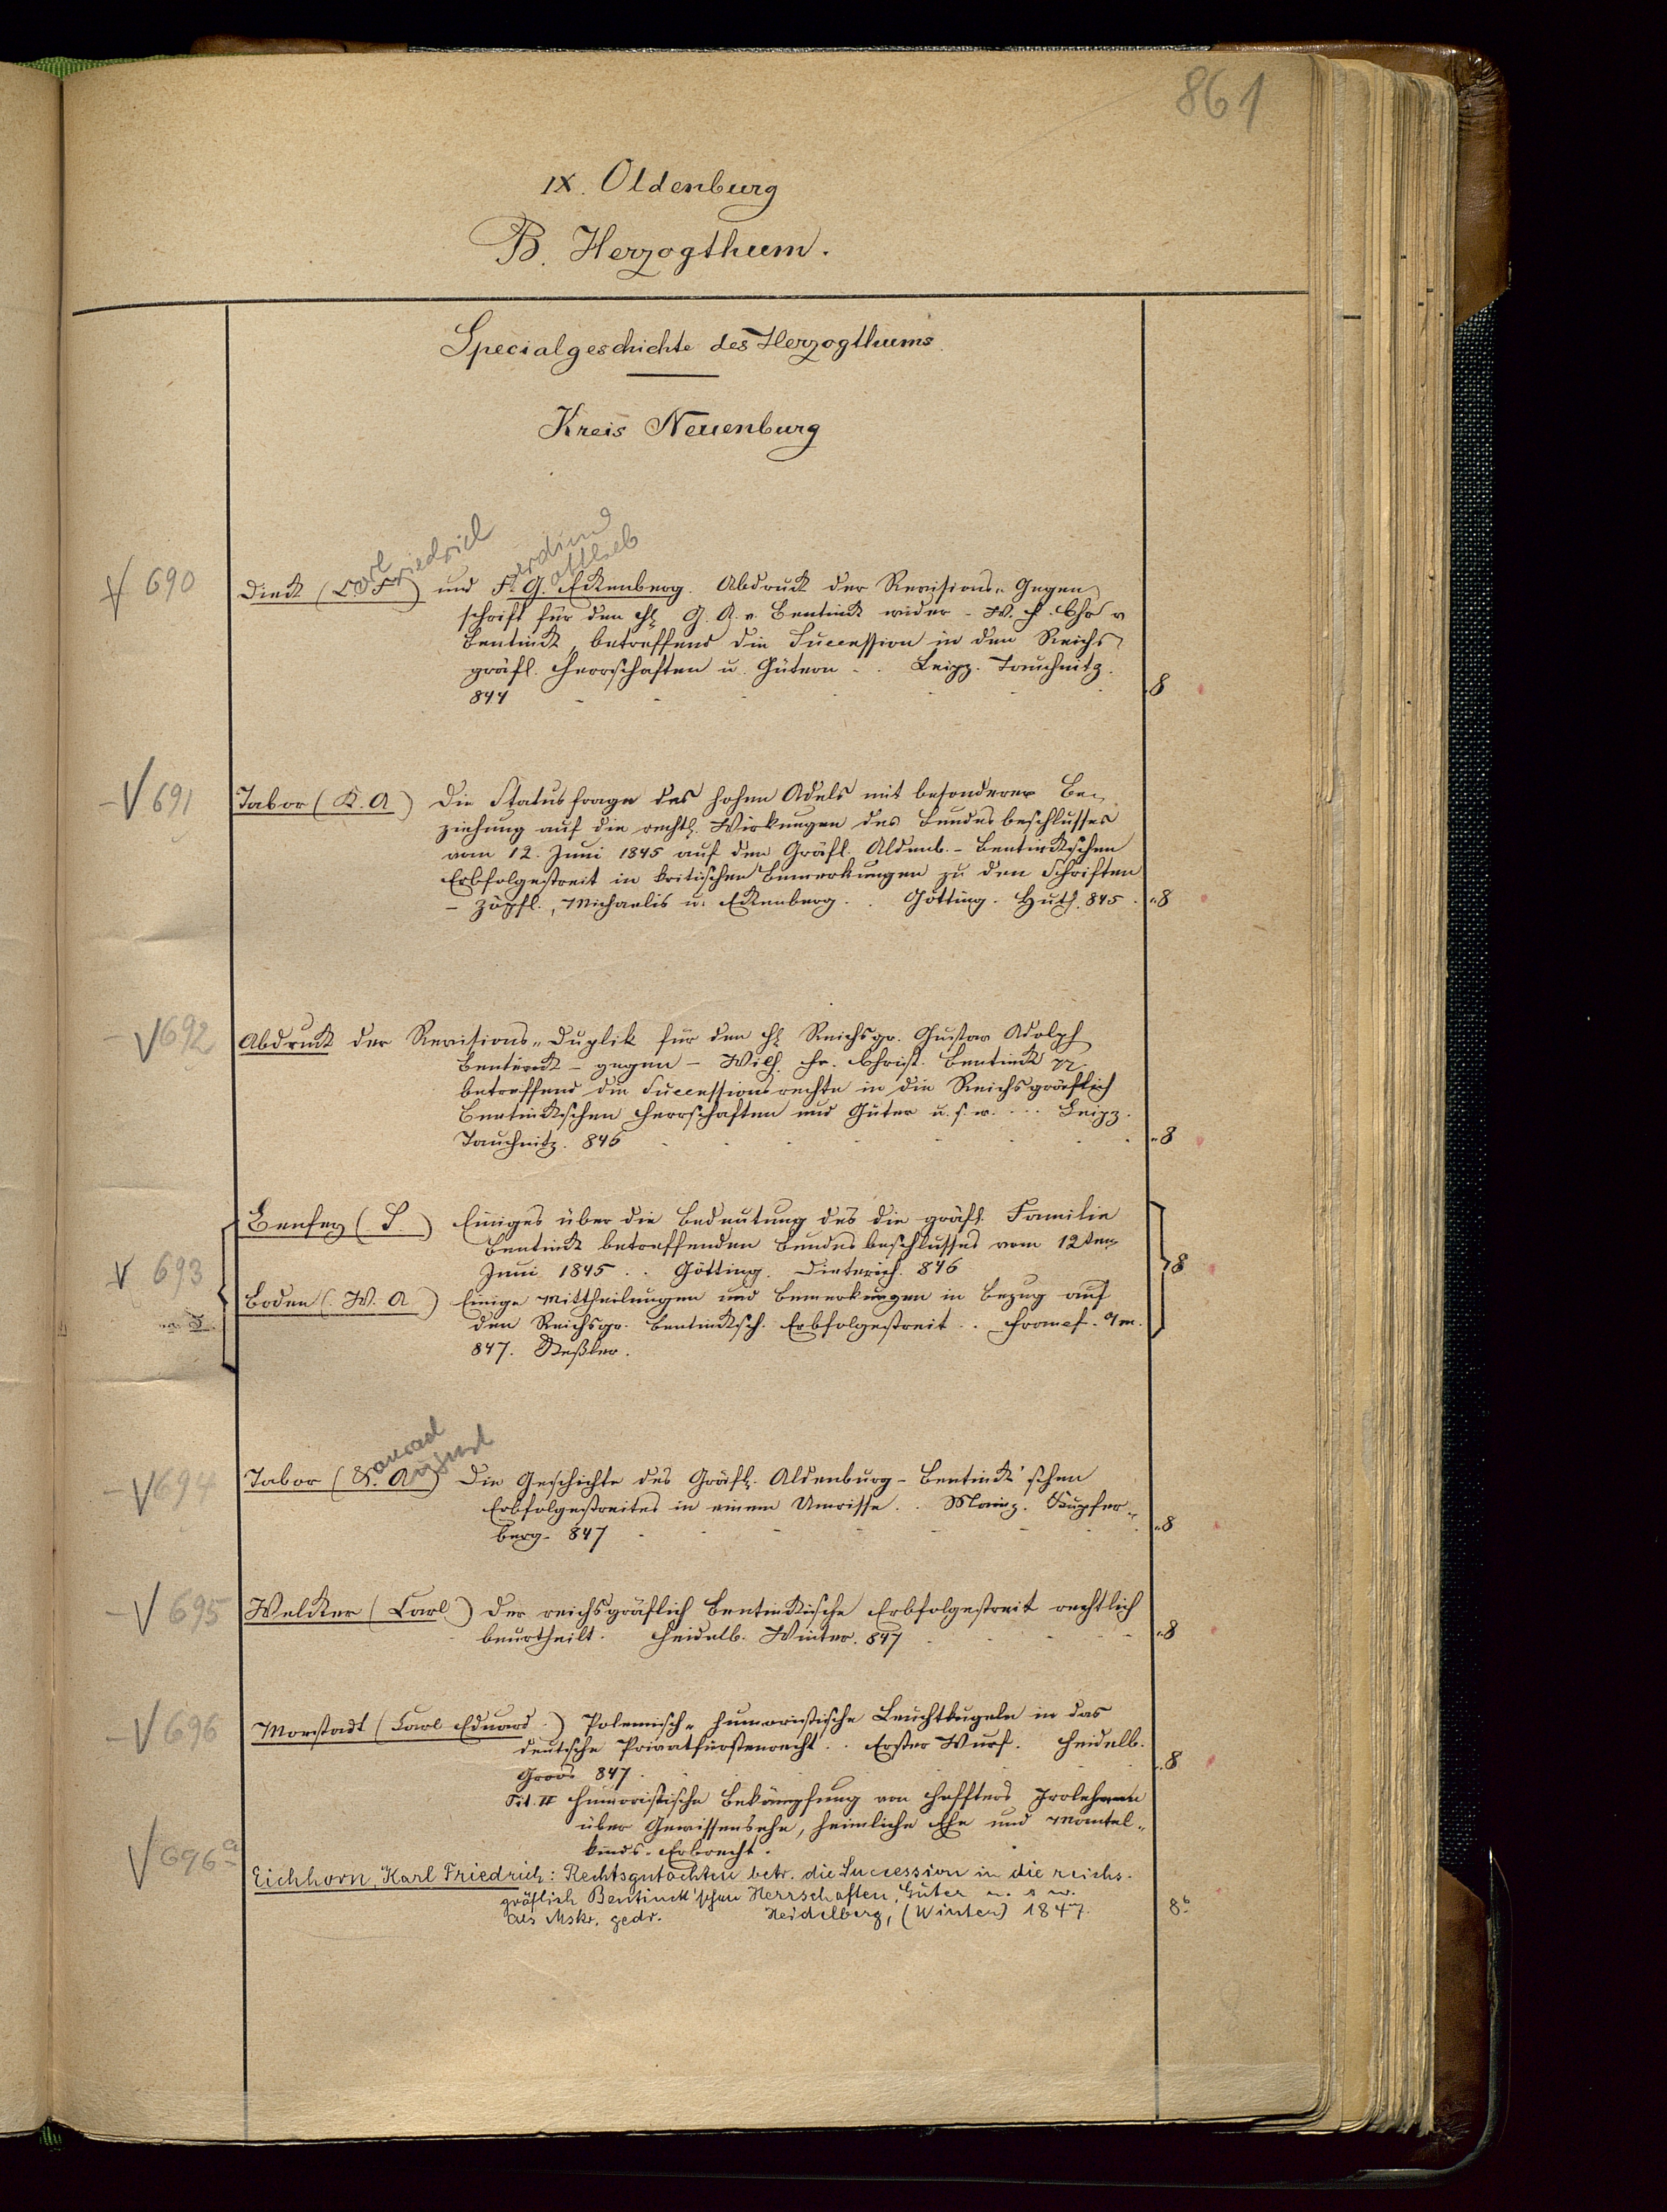 861
IX. Oldenburg
B. Herzogthum.
Specialgeschichte des Herzogthums
Kreis Neuenburg
arl riedrich erdinand ottlieb
√ 690 Dieck (C. F.) und F. G. Eckenberg. Abdruck der Revisions-Gegen-
schrift für den H. G. A. v. Bentinck wider - W. F. Chr v
Bentinck, betreffend die Succession in den Reichs-
gräfl. Herrschaften u. Gütern . . Leipz. Tauchnitz.
844 8
- √ 691 Tabor (K. A) Die Statusfrage des hohen Adels mit besonderer Be-
ziehung auf die rechtl. Wirkungen des Bundesbeschlusses
vom 12. Juni 1845 auf den Gräfl. Aldenb.-Bentinckschen
Erbfolgestreit in kritischen Bemerkungen zu den Schriften
- Zöpfl., Michaelis u. Eckenberg . . Götting. Huth. 845. "8
- √ 692 Abdruck der Revisions-Duplik für den H. Reichsgr. Gustav Adolph
Bentinck - gegen - Wilh. Fr. Christ. Bentinck
betreffend die Successionsrechte in die Reichsgräflich
Bentinckschen Herrschaften und Güter u. s. w. . . . Leipz.
Tauchnitz. 846 "8
√ 693 Benfey (S.) Einiges über die Bedeutung des die gräfl. Familie
Bentinck betreffenden Bundesbeschlusses vom 12ten
Juni 1845 . . Götting. Dieterich. 846 8
Boden (W. A) Einige Mittheilungen und Bemerkungen in Bezug auf
den Reichsgr. Bentincksch. Erbfolgestreit . . Francf. a/m.
847. Keßler.
onrad ugust
- √ 694 Tabor (K. A) Die Geschichte des Gräfl. Aldenburg-Bentinck'schen
Erbfolgestreites in einem Umrisse . . Mainz. Kupfer-
berg. 847 "8
- √ 695 Welcker (Carl) Der reichsgräflich Bentinckische Erbfolgestreit rechtlich
beurtheilt. Heidelb. Winter. 847 "8
- √ 696 Morstadt (Carl Eduard) Polemisch-humoristische Leuchtkugeln in das
deutsche Privatfürstenrecht . . Erster Wurf. Heidelb.
Groos 847 "8
Tit. II Humoristische Bekämpfung von Heffters Irrlehren
über Gewissensehe, heimliche Ehe und Mantel-
kinds-Erbrecht.
√ 696a Eichhorn, Karl Friedrich: Rechtsgutachten betr. die Succession in die reichs-
gräflich Bentinck'schen Herrschaften, Güter u. s. w.
Als Mskr. gedr. Heidelberg, (Winter) 1847. 8°